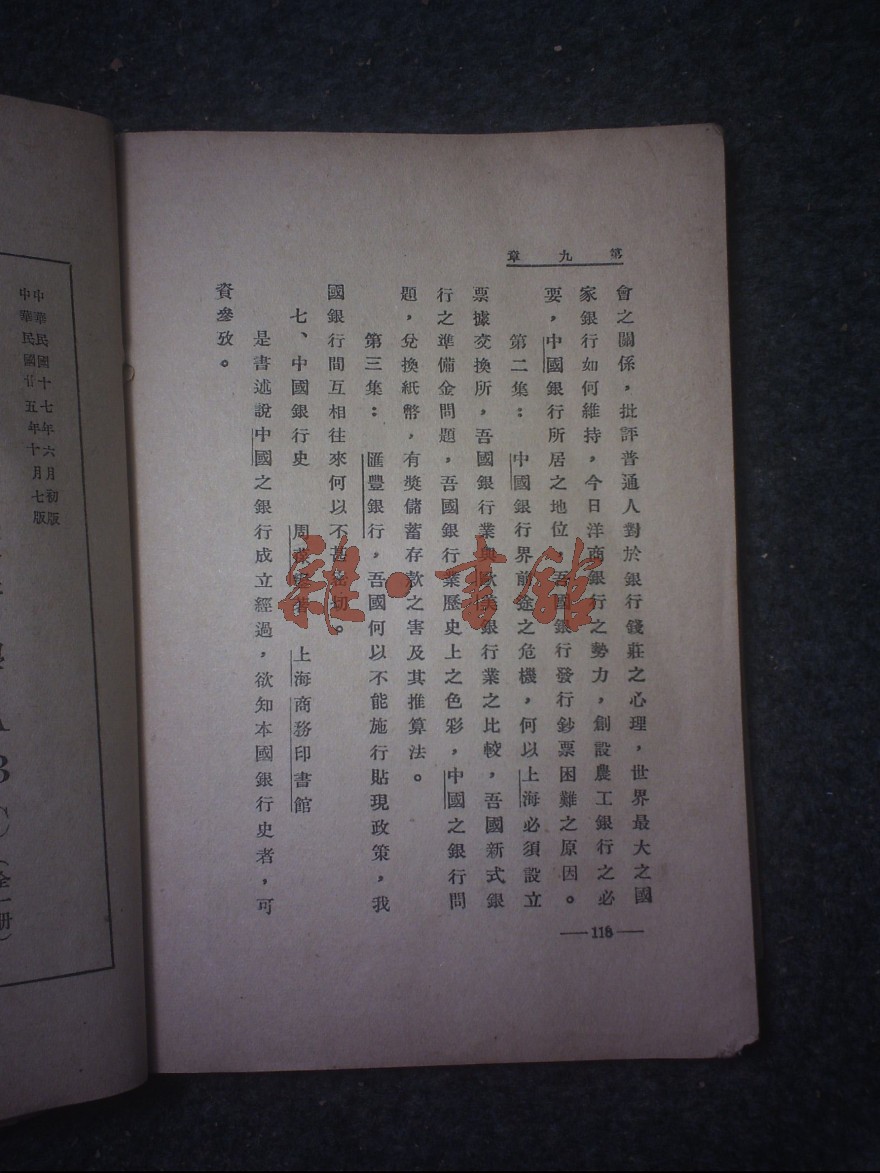 第九章
會之關係，批評普通人對於銀行錢莊之心理，世界最大之國
家銀行如何維持，今日洋商銀行之勢力，創設農工銀行之必
要，中國銀行所居之地位，吾國銀行發行鈔票困難之原因。
第二集：中國銀行界前途之危機，何以上海必須設立
票據交換所，吾國銀行業與歐美銀行業之比較，吾國新式銀
行之準備金問題，吾國銀行業歷史上之色彩，中國之銀行問
題，兌換紙幣，有獎儲蓄存款之害及其推算法。
第三集：匯豐銀行，吾國何以不能施行貼現政策，我
國銀行間互相往來何以不甚密切。
七、中國銀行史 周 著 上海商務印書館
是書述說中國之銀行成立經過，欲知本國銀行史者，可
資參攷。
—118—
中華民國十七年六月初版
中華民國廿五年十月七版
A B C（全一册）
雜·書館